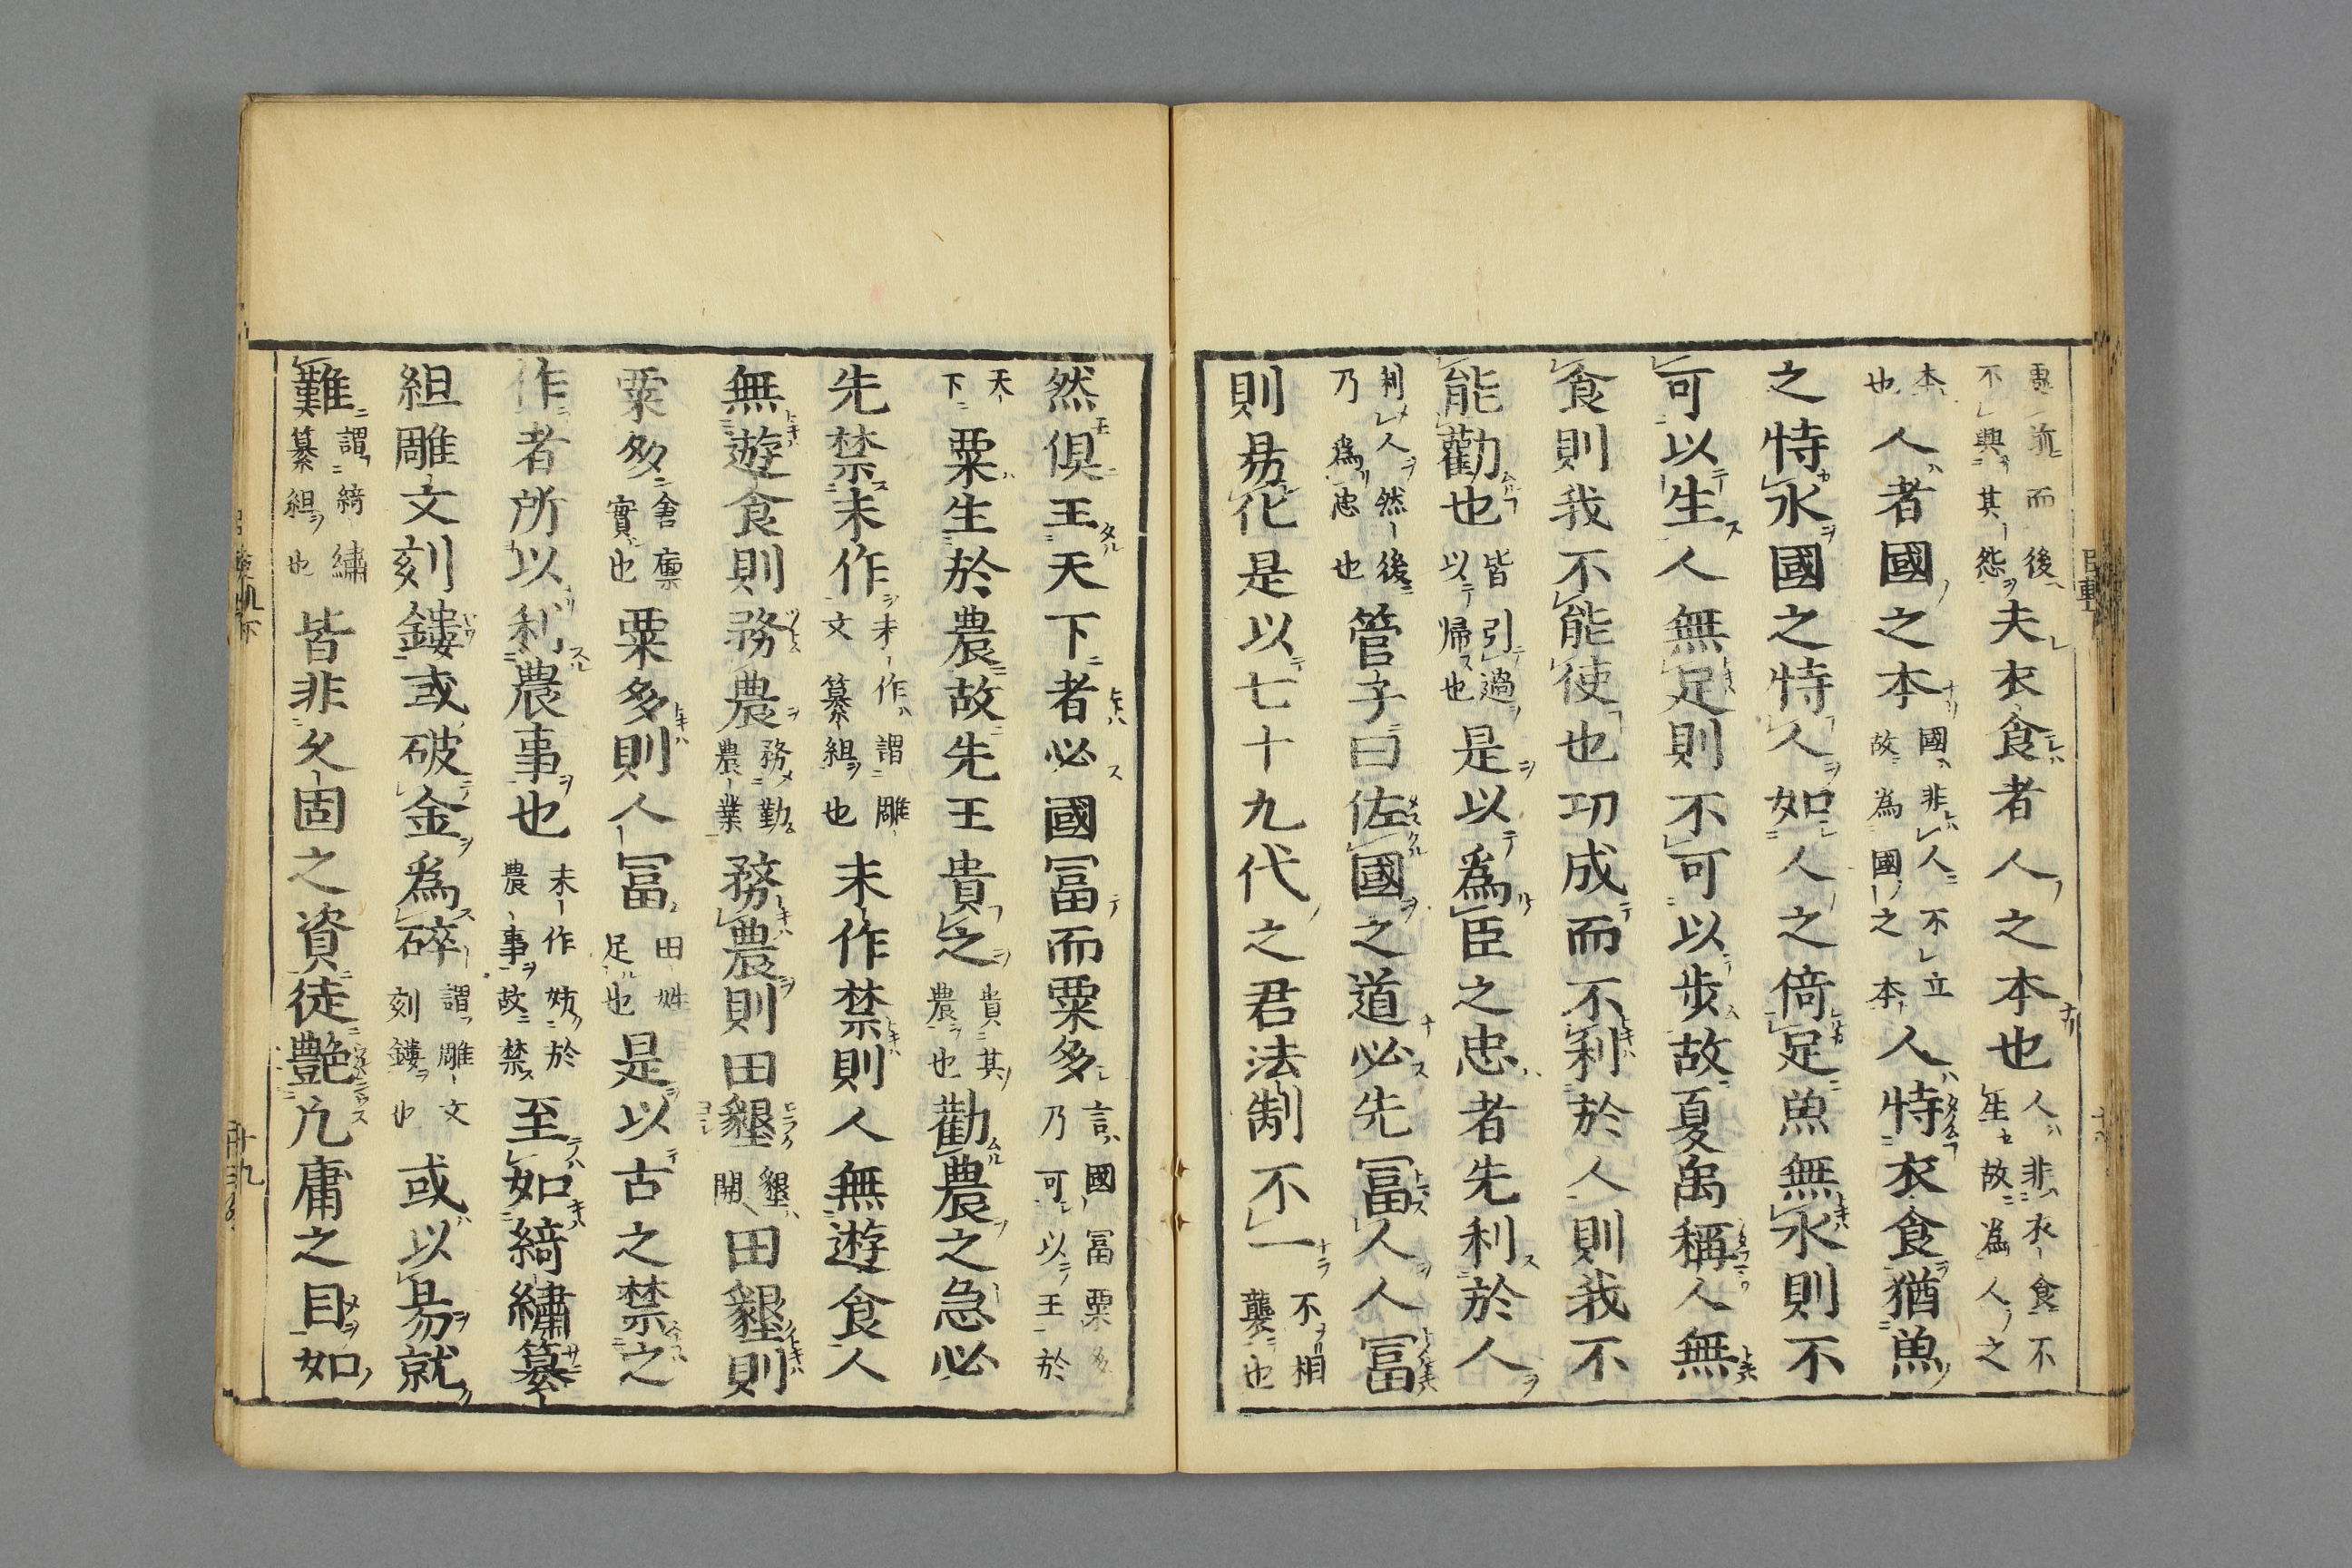 惠流而後不興其怨夫衣食者人之本也人非衣食不生故為人之
本也人者國之本國非人不立故為國之本人恃衣食猶魚
之恃水國之恃人如人之倚足魚無水則不
可以生人無足則不可以步故夏禹稱人無
食則我不能使也功成而不利於人則我不
能勸也皆引過以帰也是以爲臣之忠者先利於人
利人然後乃爲忠也管子曰佐國之道必先冨人人冨
則易化是以七十九代之君法制不一不相襲也
然俱王天下者必國冨而粟多言國冨粟多乃可以王於
天下粟生於農故先王貴之貴其農也勸農之急必
先禁末作末作謂雕文纂組也末作禁則人無遊食人
無遊食則務農務勤農業務農則田墾墾開田墾則
粟多舎廪實也粟多則人冨田姓足也是以古之禁之
作者所以利農事也末作妨於農事故禁至如綺繡纂
組雕文刻鏤或破金爲碎謂雕文刻鏤也或以易就
難謂綺繡纂組也皆非久固之資徒艶凢庸之目如